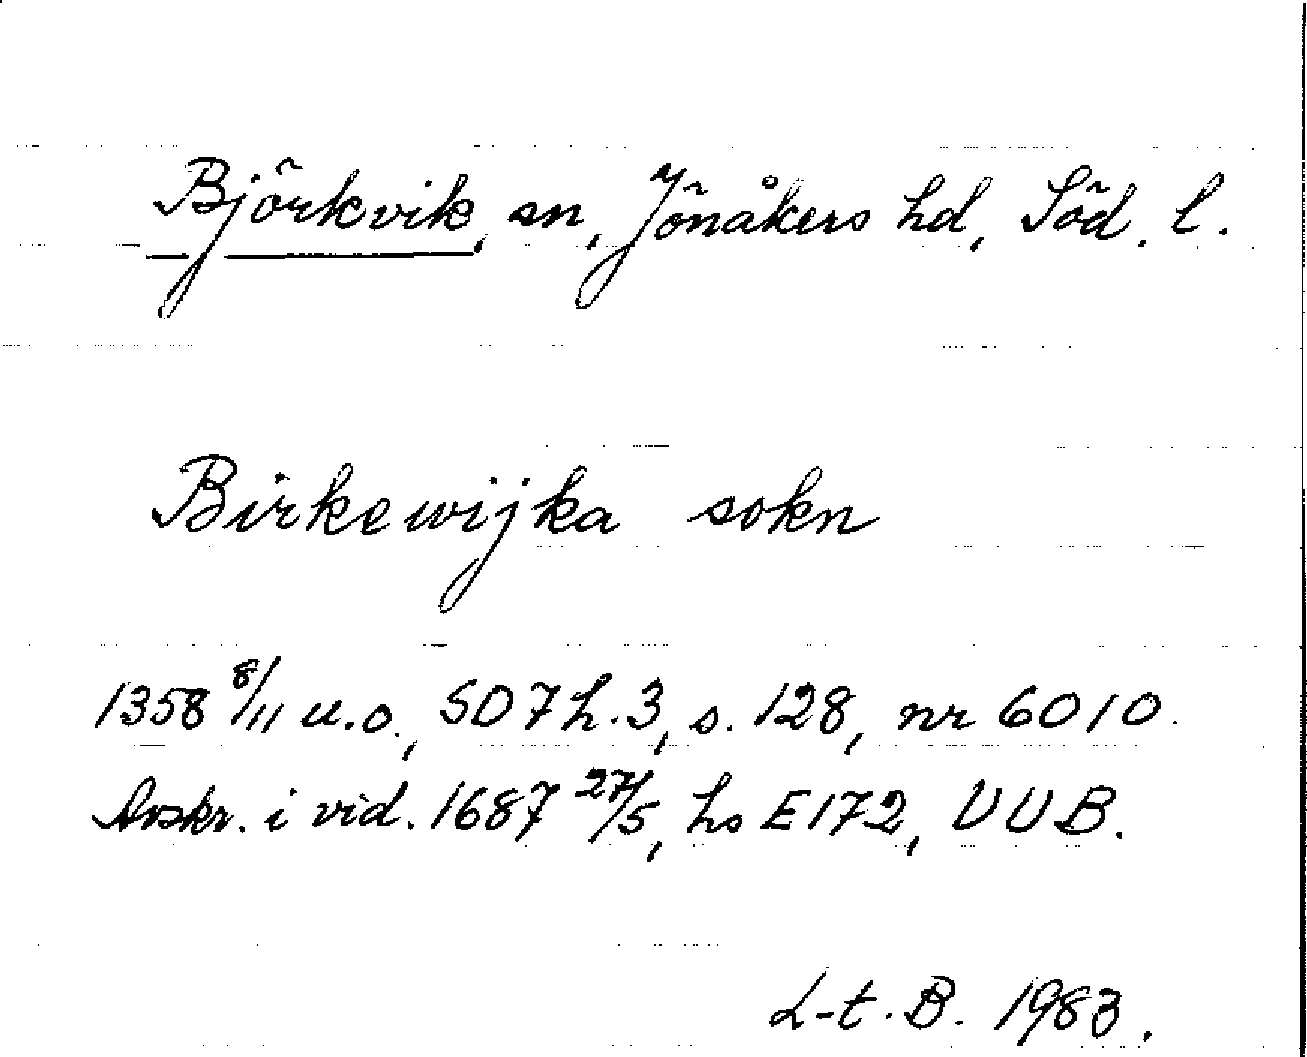 Björkvik, sn, Jönåkers hd, Söd. l.
Birkewijka sokn
1358 8/11 u.o., SD 7 h. 3, s. 128, nr 6010.
Avskr. i vid. 1687 27/5, hs E 172, UUB.
L-t. B. 1983.